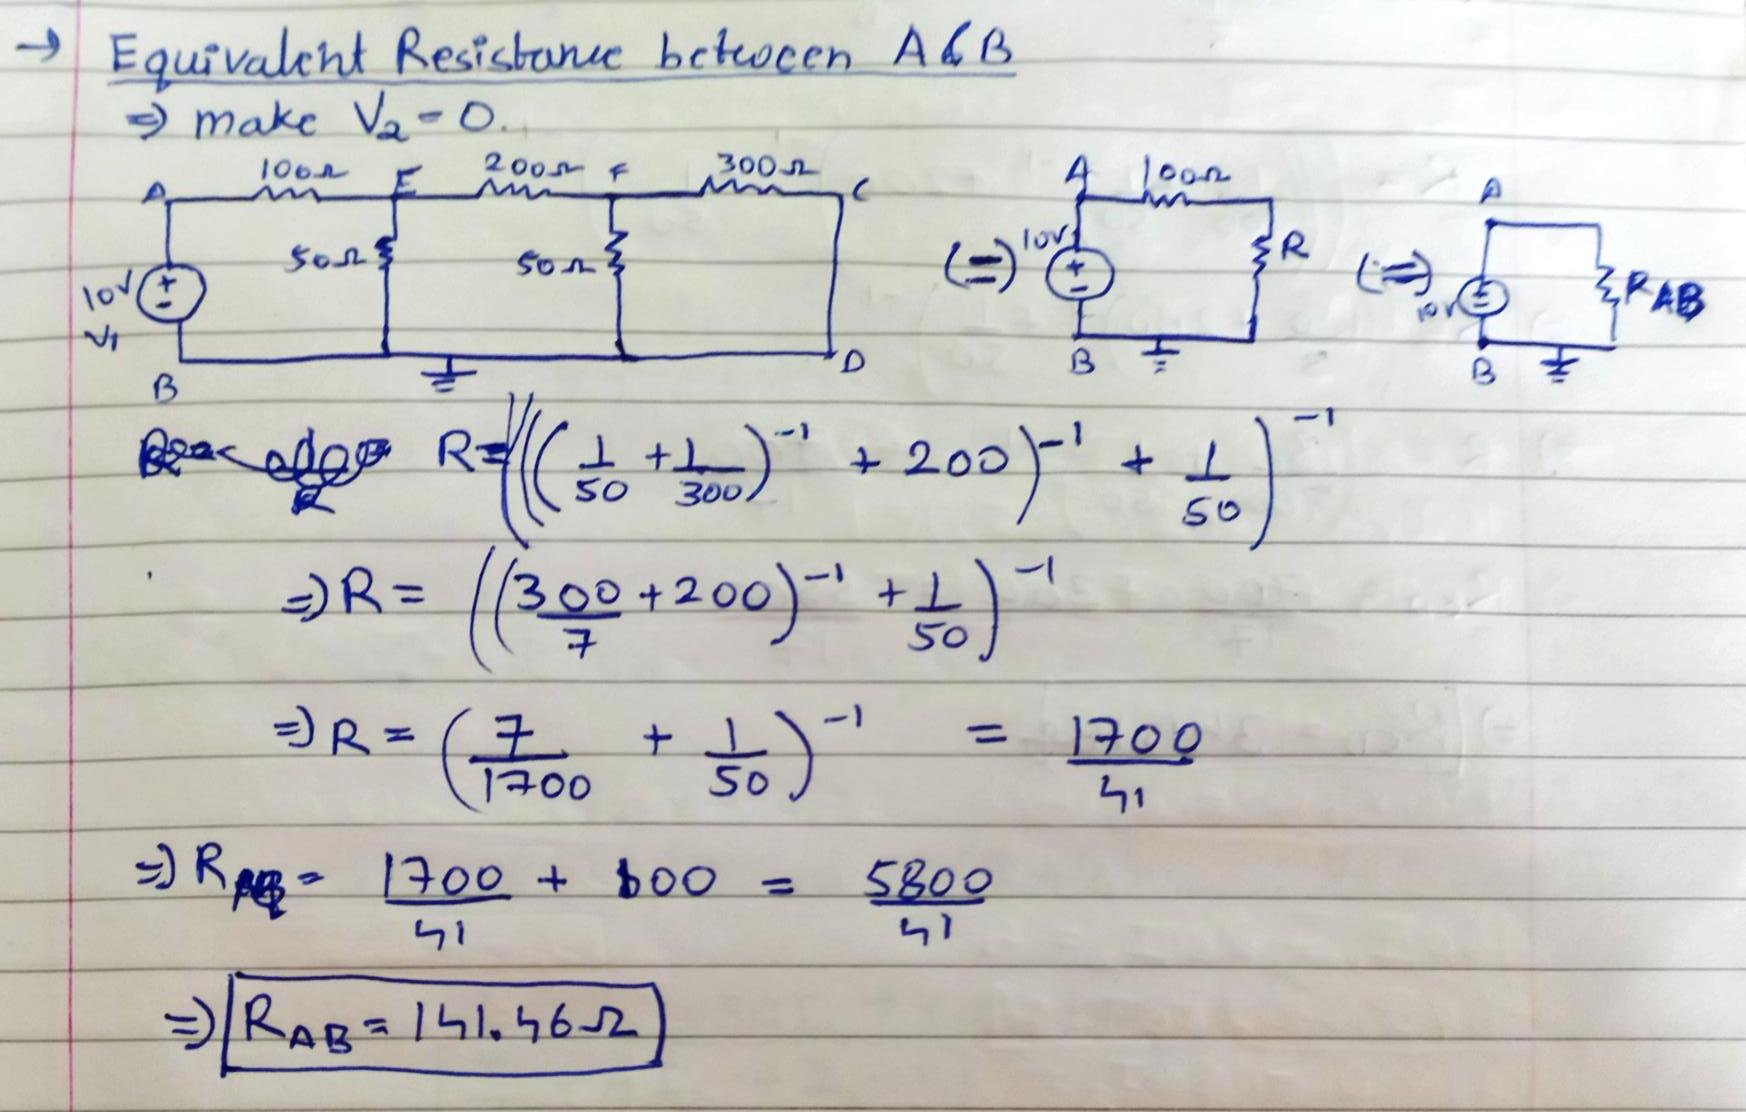 → Equivalent Resistance between A & B
⇒ make V₂ = 0.
100Ω E 200Ω F 300Ω
A C
50Ω 50Ω
10V + -
V₁
B D
(=)
A 100Ω
10V + -
R
B
(=)
A
10V
R_AB
B
R = (((1/50 + 1/300)⁻¹ + 200)⁻¹ + 1/50)⁻¹
⇒ R = ((300/7 + 200)⁻¹ + 1/50)⁻¹
⇒ R = (7/1700 + 1/50)⁻¹ = 1700/41
⇒ R_AB = 1700/41 + 100 = 5800/41
⇒ R_AB = 141.46Ω